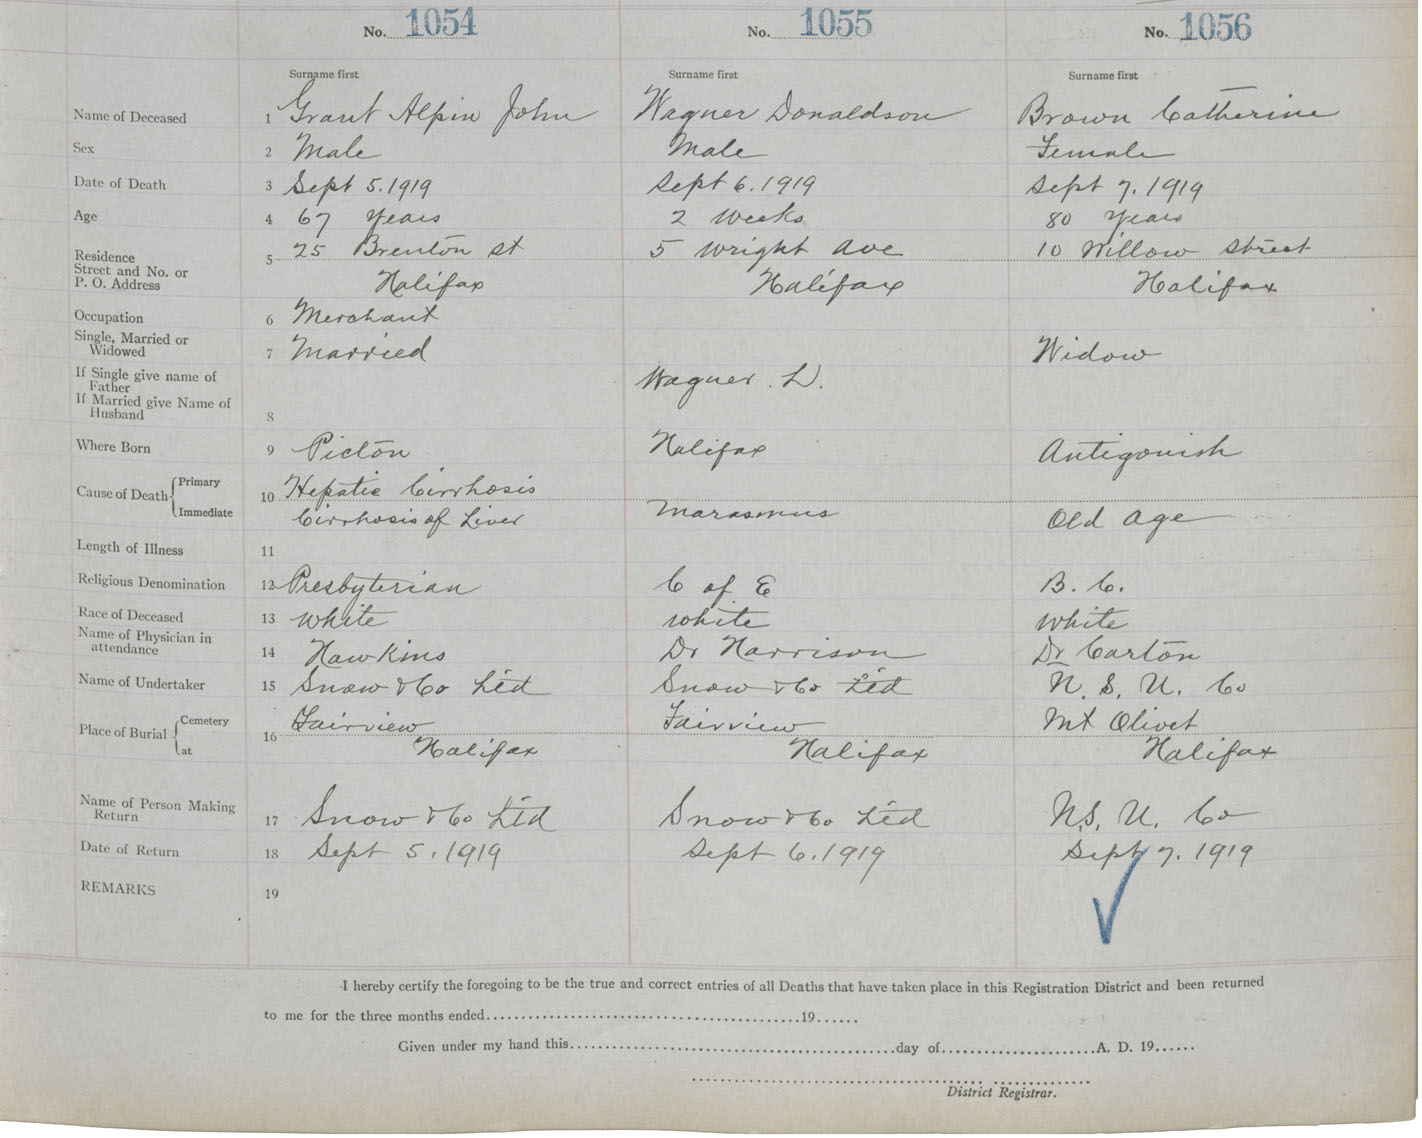 No. 1054 No. 1055 No. 1056
Surname first Surname first Surname first
Name of Deceased 1 Grant Alpin John Wagner Donaldson Brown Catherine
Sex 2 Male Male Female
Date of Death 3 Sept 5. 1919 Sept 6. 1919 Sept 7. 1919
Age 4 67 Years 2 Weeks 80 Years
Residence 5 25 Brenton st 5 Wright Ave 10 Willow Street
Street and No. or
P. O. Address Halifax Halifax Halifax
Occupation 6 Merchant
Single, Married or
Widowed 7 Married Widow
If Single give name of
Father Wagner. D.
If Married give Name of
Husband 8
Where Born 9 Pictou Halifax Antigonish
Cause of Death Primary 10 Hepatic Cirrhosis
Immediate Cirrhosis of Liver Marasmus Old Age
Length of Illness 11
Religious Denomination 12 Presbyterian C of E R. C.
Race of Deceased 13 white white white
Name of Physician in
attendance 14 Hawkins Dr Harrison Dr Carton
Name of Undertaker 15 Snow & Co Ltd Snow & Co Ltd N. S. U. Co
Place of Burial Cemetery 16 Fairview Fairview Mt Olivet
at Halifax Halifax Halifax
Name of Person Making
Return 17 Snow & Co Ltd Snow & Co Ltd N.S. U. Co
Date of Return 18 Sept 5. 1919 Sept 6. 1919 Sept 7. 1919
REMARKS 19
I hereby certify the foregoing to be the true and correct entries of all Deaths that have taken place in this Registration District and been returned
to me for the three months ended..........19......
Given under my hand this..........day of..........A. D. 19......
District Registrar.